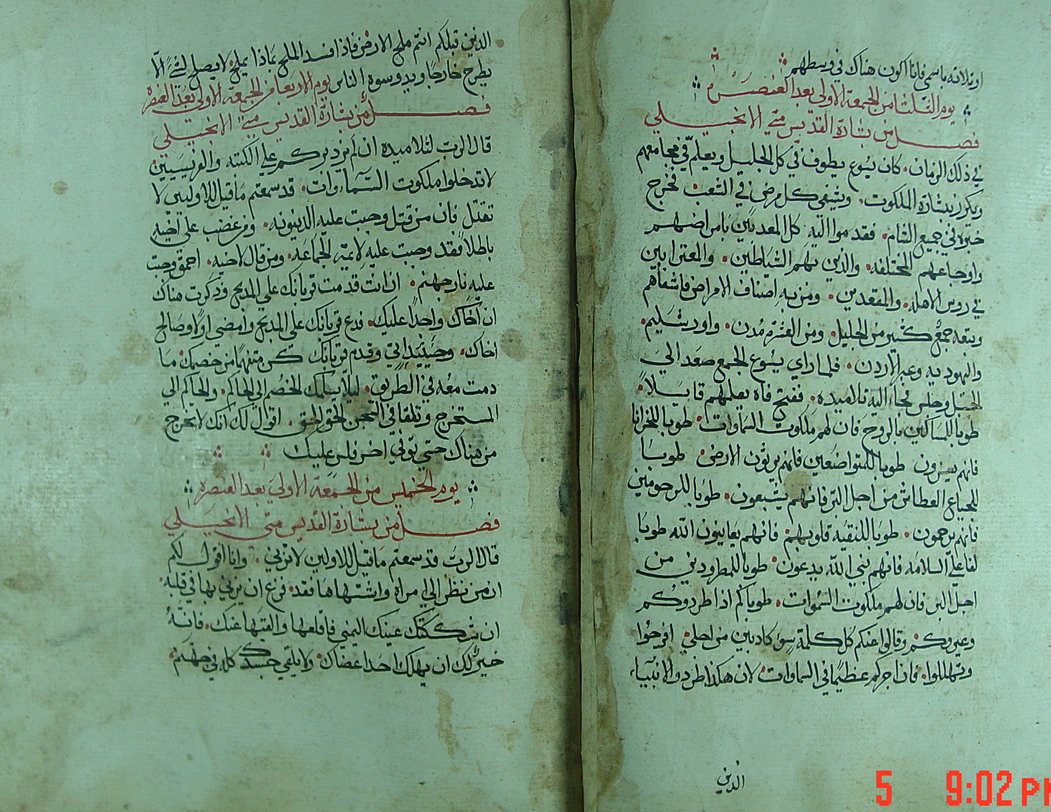 او ثلاثه باسمي فانا اكون هناك في وسطهم
يوم الثلثا من الجمعة الاولى بعد العنصره
فصل من بشارة القديس متي الانجيلي
في ذلك الزمان كان يسوع يطوف في كل الجليل ويعلم في مجامعهم
ويكرز ببشارة الملكوت وشفي كل مرض في الشعب فخرج
خبره في جميع الشام فقدموا اليه كل المعذبين بامراضهم
واوجاعهم المختلفه والذين بهم الشياطين والمعترا بين
في روس الاهله والمقعدين ومن به اصناف الامراض فاشفاهم
وتبعه جمع كثير من الجليل ومن العشرة مدن واورشليم
واليهوديه وعبر الاردن فلما راي يسوع الجمع صعد الي
الجبل وجلس فجاء اليه تلاميذه ففتح فاه يعلمهم قايلا
طوبا للمساكين بالروح فان لهم ملكوت السماوات طوبا للحزانا
فانهم يعزون طوبا للمتواضعين فانهم يرثون الارض طوبا
للجياع العطاش من اجل البر فانهم يشبعون طوبا للرحومين
فانهم يرحمون طوبا للنقيه قلوبهم فانهم يعاينون الله طوبا
لفاعلي السلامه فانهم بني الله يدعون طوبا للمطرودين من
اجل البر فان لهم ملكوت السموات طوباكم اذا طردوكم
وعيروكم وقالوا عنكم كل كلمة سو كاذبين من اجلي افرحوا
وتهللوا فان اجركم عظيما في السماوات لان هكذا طردو الانبياء
الذين
الذين قبلكم انتم ملح الارض فاذا فسد الملح بماذا يملح لا يصلح لشي الا
يطرح خارجا ويدوسوه الناس يوم الاربعا من الجمعة الاولى بعد العنصره
فصل من بشارة القديس متي الانجيلي
قال الرب لتلاميذه ان لم يزد بركم علي الكتبه والفريسيين
لا تدخلوا ملكوت السماوات قد سمعتم ما قيل للاولين لا
تقتل فان من قتل وجبت عليه الدينونه ومن غضب علي اخيه
باطلا فقد وجبت عليه لايمة الجماعه ومن قال لاخيه احمق وجبت
عليه نار جهنم ان انت قدمت قربانك علي المذبح وذكرت هناك
ان اخاك واجدا عليك فدع قربانك علي المذبح وامضي اولا وصالح
اخاك وحينيذ اتي وقدم قربانك كن متفهما من خصمك ما
دمت معه في الطريق ليلا يسلمك الخصم الي الحاكم والحاكم الي
المستخرج وتلقا في السجن الحق الحق اقول لك انك لا تخرج
من هناك حتي توفي اخر فلس عليك
يوم الخميس من الجمعة الاولى بعد العنصره
فصل من بشارة القديس متى الانجيلي
قال الرب قد سمعتم ما قيل للاولين لا تزني وانا اقول لكم
ان من نظر الي مراة واشتهاها فقد فرغ ان يزني بها في قلبه
ان شككتك عينك اليمني فاقلعها والقها عنك فانه
خير لك ان يهلك احد اعضاك ولا يلقي جسدك كله في جهنم
5 9:02 PM